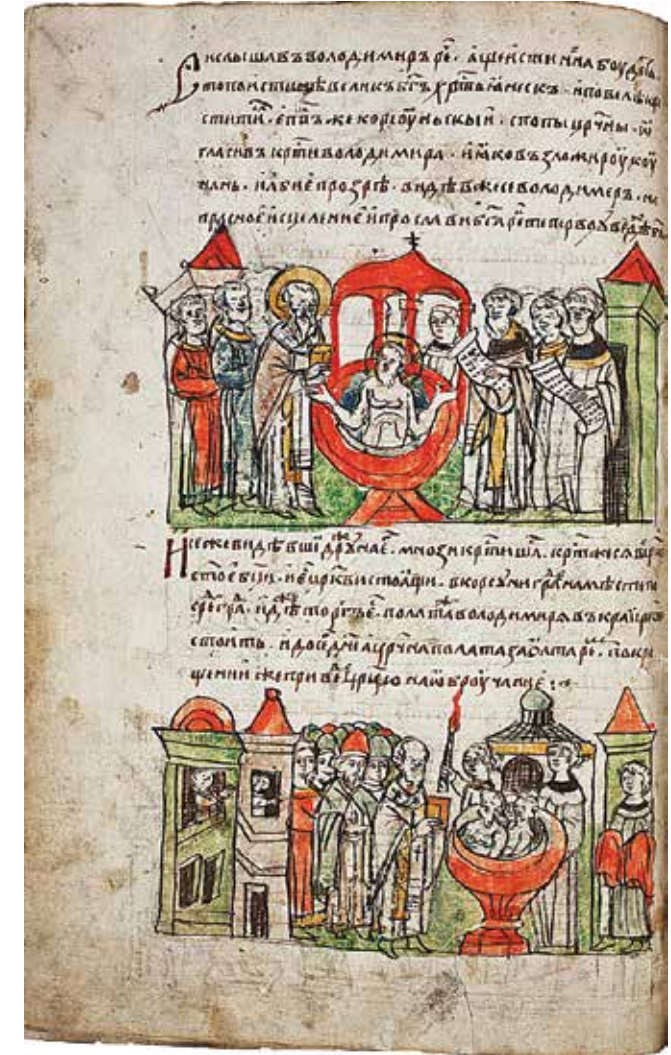 И слышавъ володимиръ ре҃. аще истинна боудеть
то поистинѣ великъ бг҃ъ хрт҃ьꙗнескъ. и повелѣ кр
стити сѧ҃. еп҃пъ же корсоуньскыи. с попы цр҃чны. ѡ
гласивъ крт҃и володимира. и ꙗко възложи роукоу
нань. и абие прозрѣ. видѣв же се володимеръ. на
прасное исцеление и прослави бг҃а
се же видѣвши дружина е҃. мнози крт҃ишасѧ. крт҃ же сѧ в
ст҃ое бц҃и. и е цр҃кви стоꙗщи. в корсуни градѣ на мѣсте
средѣ гра҃. идѣ҃же торгъ полата володимирѧ въ краи цр҃кве
стоить. и до сег҃о дн҃е а цр҃чна полата за ѡлтаре҃. по кр
щении же приве҃ цр҃цю на ѡброучание :~